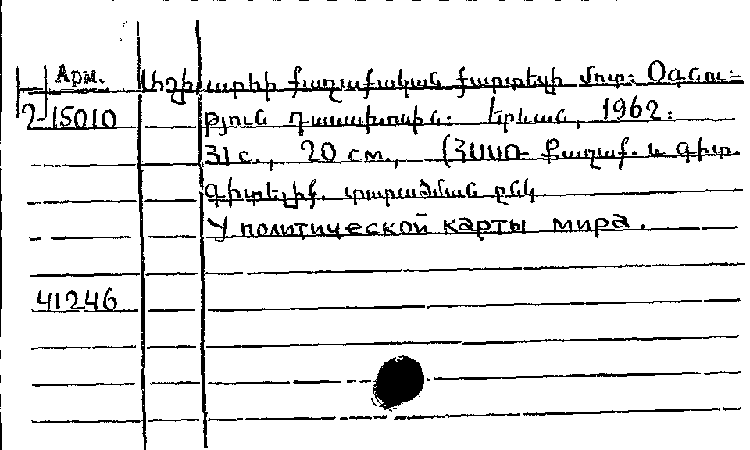 Арм. Աշխարհի քաղաքական քարտեզի մոտ: Օգնու-
2-15010 թյուն դասախոսին: Երևան, 1962:
31 с., 20 см., (ՀՍՍՌ Քաղաք. և գիտ.
գիտելիք. տարածման ընկ
У политической карты мира.
41246